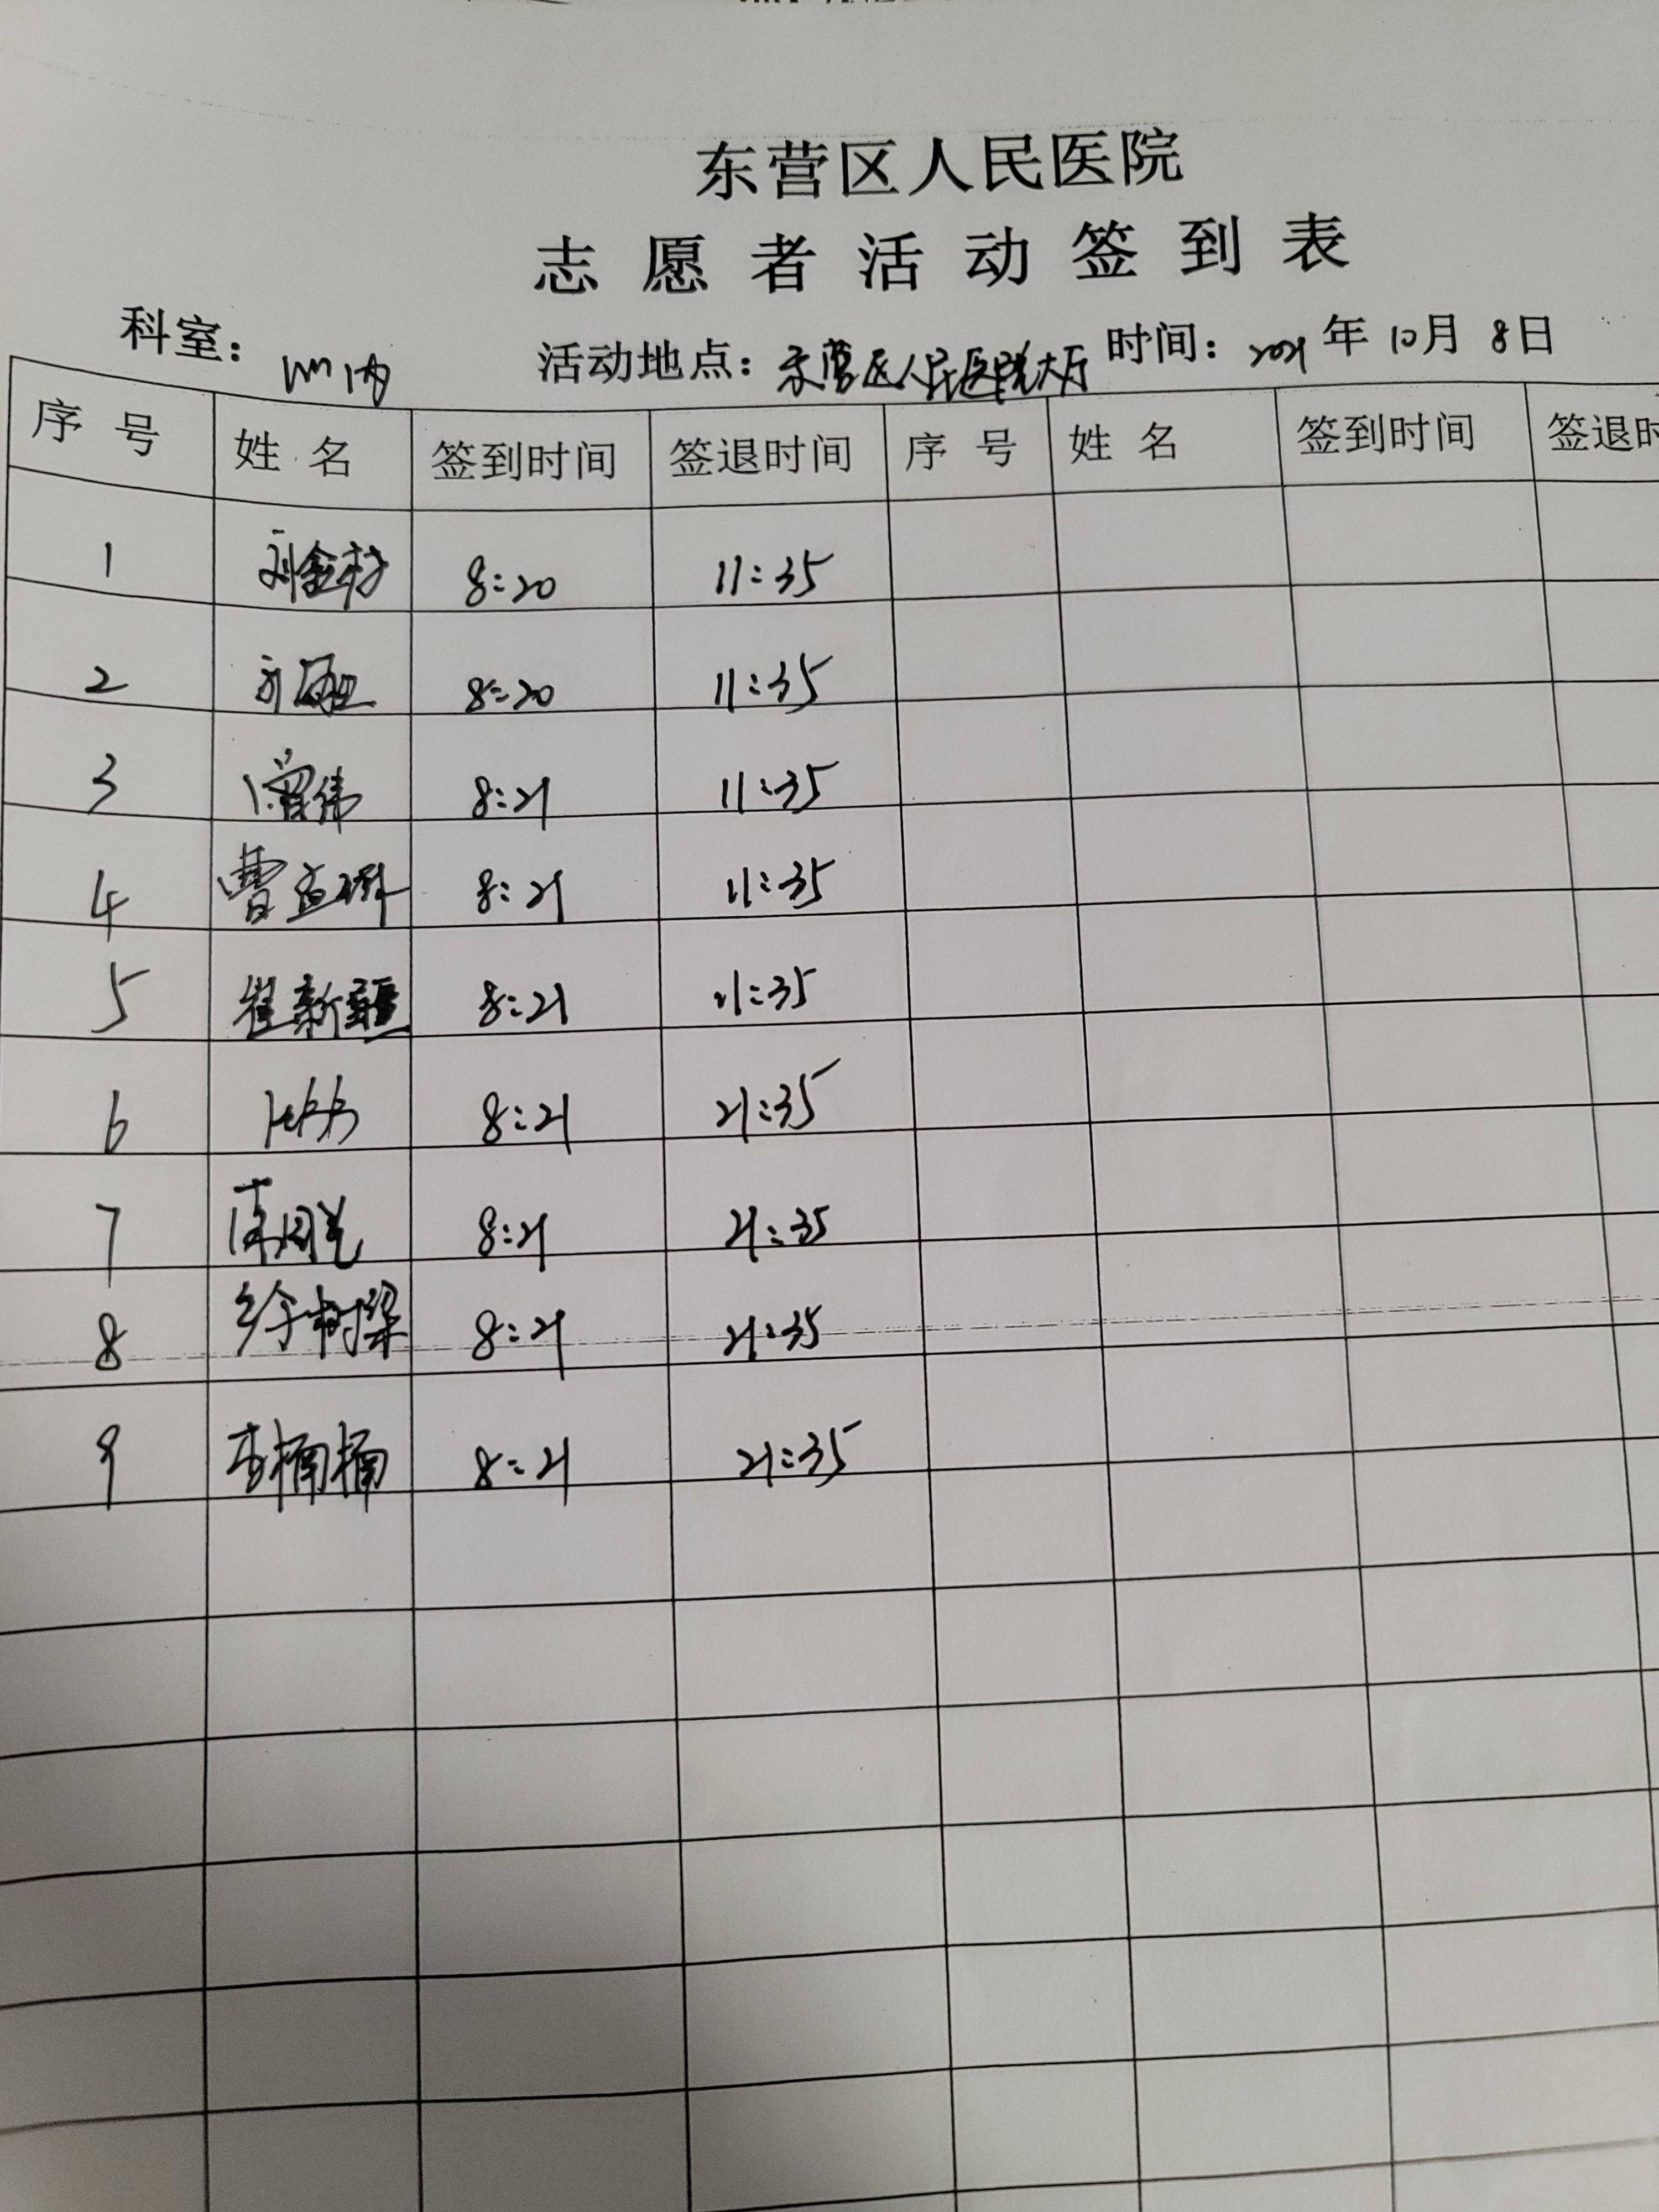 东营区人民医院
志愿者活动签到表
科室： 活动地点：东营区人民医院大厅 时间：2021年10月8日
序号 姓名 签到时间 签退时间 序号 姓名 签到时间 签退时
1 8:20 11:35
2 8:20 11:35
3 8:21 11:35
4 曹孟 8:21 11:35
5 崔新疆 8:21 11:35
6 8:21 21:35
7 8:21 21:35
8 徐树梁 8:21 21:35
9 李楠楠 8:21 21:35